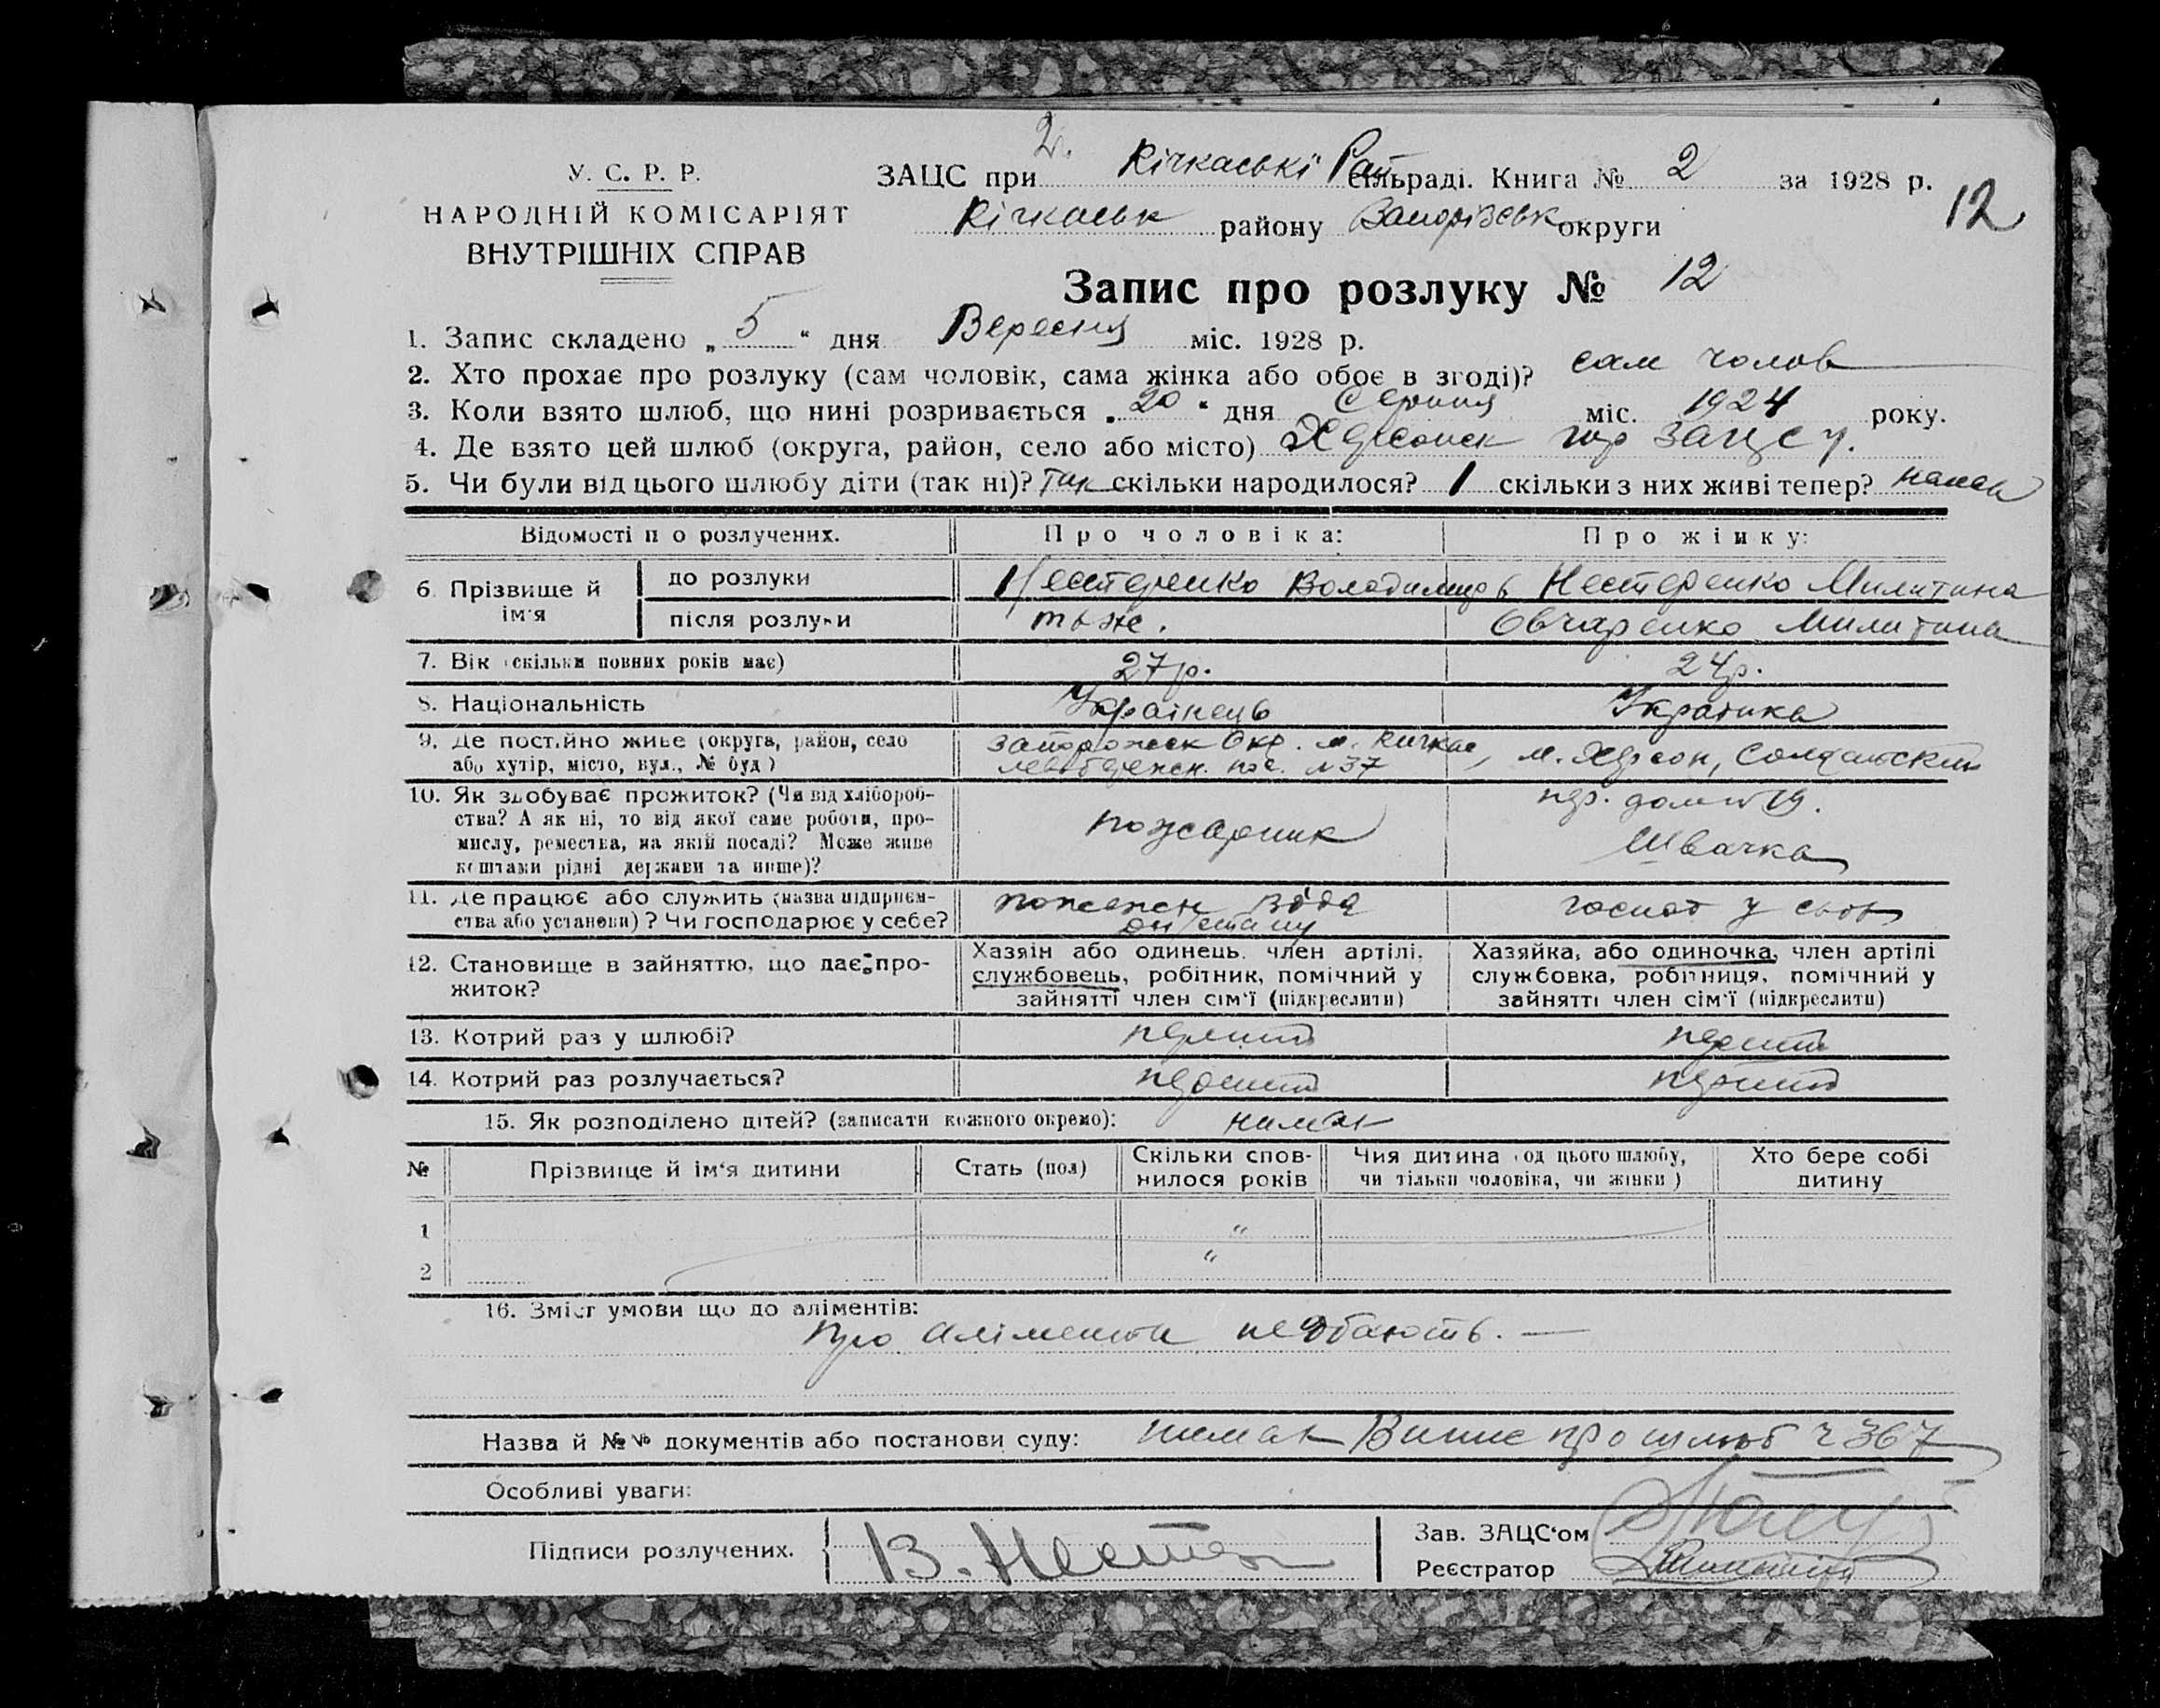 У. С. Р. Р.
НАРОДНІЙ КОМІСАРІЯТ
ВНУТРІШНІХ СПРАВ
ЗАЦС при Кічкаські Рай Сільраді. Книга № 2 за 1928 р.
12
Кічкаськ району Запорізськ округи
Запис про розлуку № 12
1. Запис складено „ 5 “ дня Вересня міс. 1928 р.
2. Хто прохає про розлуку (сам чоловік, сама жінка або обоє в згоді)? сам чолов
3. Коли взято шлюб, що нині розривається „ 20 “ дня Серпня міс. 1924 року.
4. Де взято цей шлюб (округа, район, село або місто) Херсонск гор ЗАГЦСу.
5. Чи були від цього шлюбу діти (так ні)? Так скільки народилося? 1 скільки з них живі тепер? немає
Відомості п о розлучених. Про чоловіка: Про жінку:
6 Прізвище й ім'я
до розлуки Нестеренко Володимир Нестеренко Милитина
після розлуки тоже. Овчаренко Милитина
7. Вік (скільки повних років має) 27р. 24р.
8. Національність Українець Українка
9. Де постійно живе (округа, район, село Запорожск Окр. м. Кичкас,
або хутір, місто, вул., № буд) пос. №37 м. Херсон, Солдатский
пер. дом №19.
10. Як здобуває прожиток? (Чи від хлібороб-
ства? А як ні, то від якої саме роботи, про-
мислу, ремества, на якій посаді? Може живе
коштами рідні держави та инше)?
пожарник Швачка
11. Де працює або служить (назва підприєм-
ства або установи)? Чи господарює у себе?
пожежн госпо у себе
12. Становище в зайняттю, що дає про-
житок?
Хазяїн або одинець. член артілі,
службовець, робітник, помічний у
зайнятті член сім'ї (підкреслити)
Хазяйка, або одиночка, член артілі
службовка, робітниця, помічний у
зайнятті член сім'ї (підкреслити)
13. Котрий раз у шлюбі? перший перший
14. Котрий раз розлучається? перший перший
15. Як розподілено дітей? (записати кожного окремо): нимає
№ Прізвище й ім'я дитини Стать (пол) Скільки спов-
нилося років Чия дитина (од цього шлюбу,
чи тільки чоловіка, чи жінки) Хто бере собі
дитину
1 “
2 “
16. Зміст умови що до аліментів:
Про аліменти не дбають. —
Назва й №№ документів або постанови суду: нимає Випис про шлюб ч 367
Особливі уваги:
Підписи розлучених. В. Нестер
Зав. ЗАЦС'ом
Реєстратор